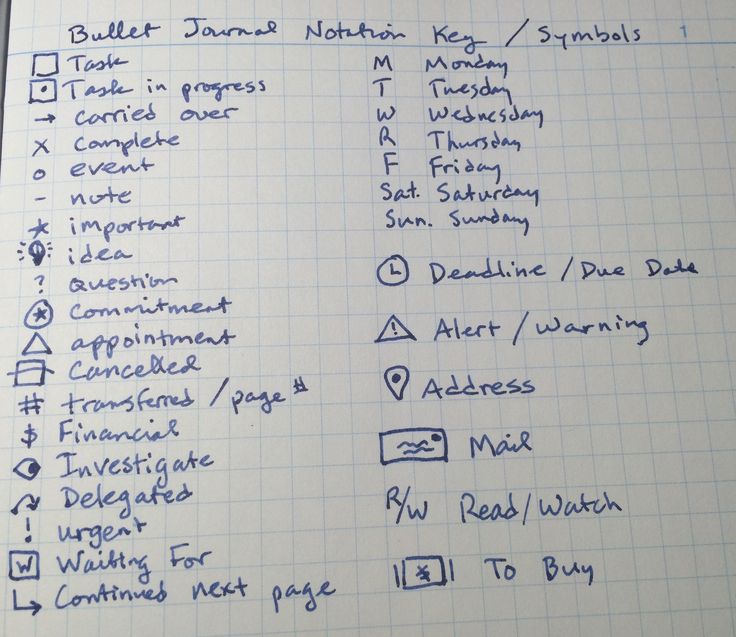 Bullet Journal Notation Key / Symbols 1
Task
Task in progress
→ carried over
x complete
o event
- note
* important
idea
? question
* commitment
appointment
Cancelled
# transferred / page #
$ Financial
Investigate
Delegated
! urgent
W Waiting For
Continued next page
M Monday
T Tuesday
W Wednesday
R Thursday
F Friday
Sat. Saturday
Sun. Sunday
Deadline / Due Date
! Alert / Warning
Address
Mail
R/W Read/Watch
To Buy